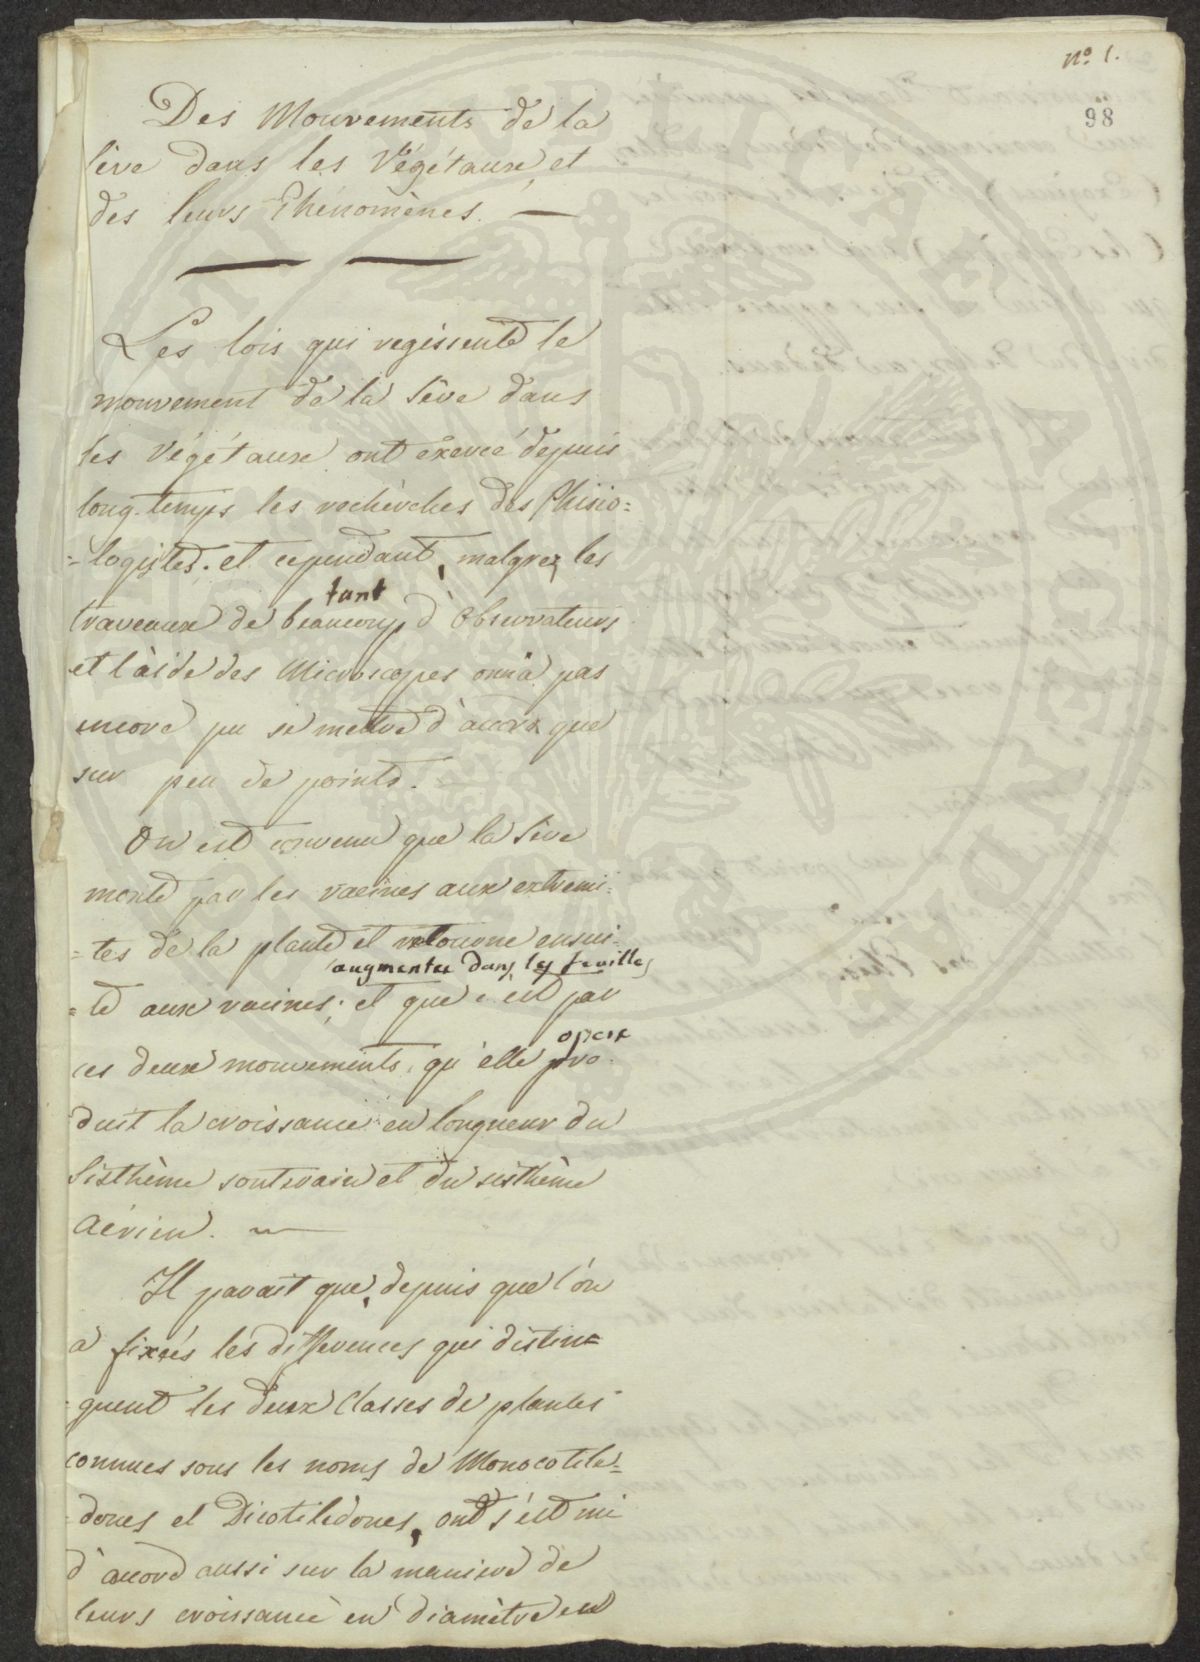 N.º 1.
98
Des Mouvements de la
sève dans les Végétaux, et
des leurs Phénomènes. —
Les lois qui regissent le
mouvement de la Sève dans
les Végétaux ont exercé depuis
long-temps les rechèrches des Phisio=
=logistes. et cependant, malgrez les
tant
travaux de beaucoup d'Observateurs
et l'aide des Microscopes on n'a pas
encore pu se mettre d'accord que
sur peu de points.
On est convenu que la Sève
monte par les racines aux extremi=
=tes de la plante et retourne ensui=
augmentée dans les feuilles
=te aux racines; et que c'est par
opere
ces deux mouvements, qu'elle pro=
duit la croissance en longueur du
Sisthème souterain et du sisthème
Aérien. —
Il parait que, depuis que l'on
a fixées les differences qui distin=
=guent les deux Classes de plantes
connues sous les noms de Monocotile=
=dones et Dicotilèdones, ont s'est mi
d'accord aussi sur la maniere de
leurs croissance en diamètre en